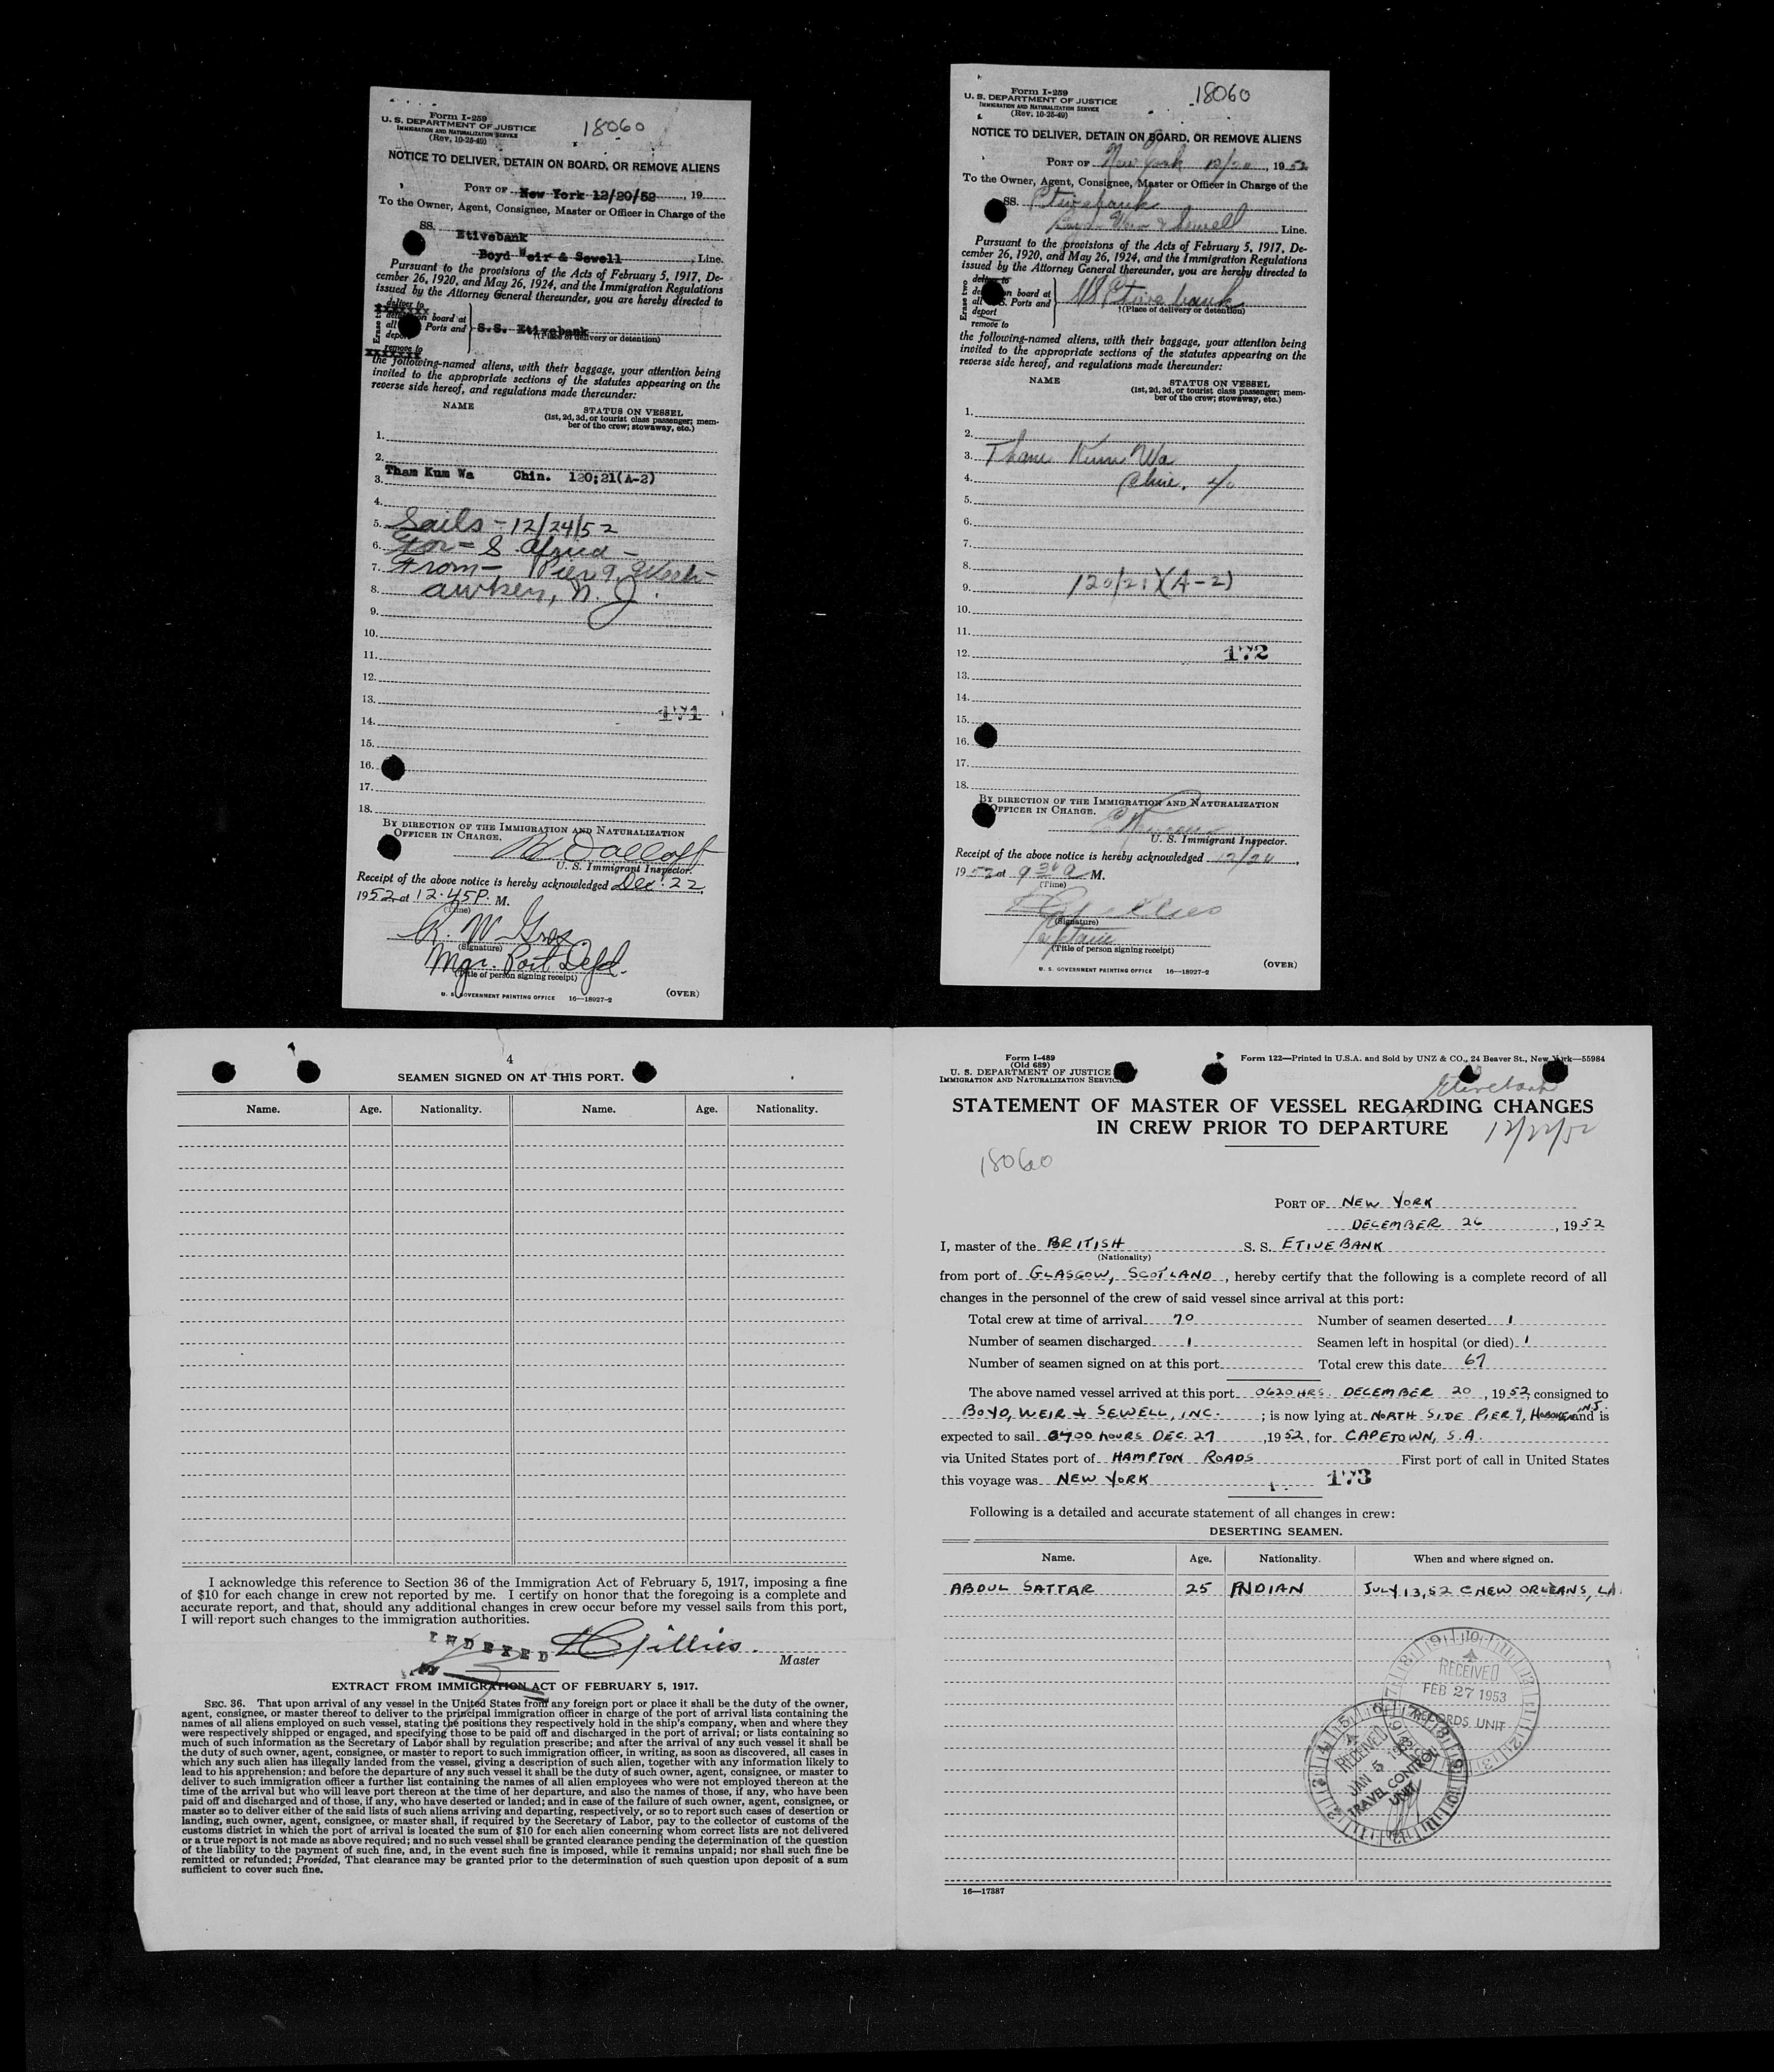 Form I-259
U. S. DEPARTMENT OF JUSTICE
IMMIGRATION AND NATURALIZATION SERVICE
(Rev. 10-25-49)
18060
NOTICE TO DELIVER, DETAIN ON BOARD, OR REMOVE ALIENS
PORT OF New York 12/20/52, 19
To the Owner, Agent, Consignee, Master or Officer in Charge of the
SS. Etivebank
Boyd Weir & Sewell, Line.
Pursuant to the provisions of the Acts of February 5, 1917, De-
cember 26, 1920, and May 26, 1924, and the Immigration Regulations
issued by the Attorney General thereunder, you are hereby directed to
Erase two
deliver to
on board at
all Ports and
deport
remove to
S.S. Etivebank
†(Place of delivery or detention)
the following-named aliens, with their baggage, your attention being
invited to the appropriate sections of the statutes appearing on the
reverse side hereof, and regulations made thereunder:
NAME
STATUS ON VESSEL
(1st, 2d, 3d, or tourist class passenger; mem-
ber of the crew; stowaway, etc.)
1.
2.
3. Tham Kum Wa Chin. 120;21(A-2)
4.
5. Sails - 12/24/52
6. For = S. Africa -
7. From - Pier 9, Weeh-
8. awken, N. J.
9.
10.
11.
12.
13.
171
14.
15.
16.
17.
18.
BY DIRECTION OF THE IMMIGRATION AND NATURALIZATION
OFFICER IN CHARGE.
U. S. Immigrant Inspector.
Receipt of the above notice is hereby acknowledged Dec. 22,
1952 at 12.45P. M.
(Time)
(Signature)
Mgr. Port Dept.
(Title of person signing receipt)
U. S. GOVERNMENT PRINTING OFFICE 16—18927-2
(OVER)
Form I-259
U. S. DEPARTMENT OF JUSTICE
IMMIGRATION AND NATURALIZATION SERVICE
(Rev. 10-25-49)
18060
NOTICE TO DELIVER, DETAIN ON BOARD, OR REMOVE ALIENS
PORT OF New York 12/20, 1952
To the Owner, Agent, Consignee, Master or Officer in Charge of the
SS. Etivebank
Boyd Weir & Sewell Line.
Pursuant to the provisions of the Acts of February 5, 1917, De-
cember 26, 1920, and May 26, 1924, and the Immigration Regulations
issued by the Attorney General thereunder, you are hereby directed to
Erase two
deliver to
on board at
all Ports and
deport
remove to
SS Etivebank
†(Place of delivery or detention)
the following-named aliens, with their baggage, your attention being
invited to the appropriate sections of the statutes appearing on the
reverse side hereof, and regulations made thereunder:
NAME
STATUS ON VESSEL
(1st, 2d, 3d, or tourist class passenger; mem-
ber of the crew; stowaway, etc.)
1.
2.
3. Tham Kum Wa
4. Chin.
5.
6.
7.
8.
9. 120/21)(A-2)
10.
11.
12. 172
13.
14.
15.
16.
17.
18.
BY DIRECTION OF THE IMMIGRATION AND NATURALIZATION
OFFICER IN CHARGE.
U. S. Immigrant Inspector.
Receipt of the above notice is hereby acknowledged 12/20,
1952 at 9 30 a M.
(Time)
(Signature)
Captain
(Title of person signing receipt)
U. S. GOVERNMENT PRINTING OFFICE 16—18927-2
(OVER)
4
SEAMEN SIGNED ON AT THIS PORT.
Name. Age. Nationality. Name. Age. Nationality.
I acknowledge this reference to Section 36 of the Immigration Act of February 5, 1917, imposing a fine
of $10 for each change in crew not reported by me. I certify on honor that the foregoing is a complete and
accurate report, and that, should any additional changes in crew occur before my vessel sails from this port,
I will report such changes to the immigration authorities.
INDEXED
Gillies.
Master
BY
EXTRACT FROM IMMIGRATION ACT OF FEBRUARY 5, 1917.
SEC. 36. That upon arrival of any vessel in the United States from any foreign port or place it shall be the duty of the owner,
agent, consignee, or master thereof to deliver to the principal immigration officer in charge of the port of arrival lists containing the
names of all aliens employed on such vessel, stating the positions they respectively hold in the ship's company, when and where they
were respectively shipped or engaged, and specifying those to be paid off and discharged in the port of arrival; or lists containing so
much of such information as the Secretary of Labor shall by regulation prescribe; and after the arrival of any such vessel it shall be
the duty of such owner, agent, consignee, or master to report to such immigration officer, in writing, as soon as discovered, all cases in
which any such alien has illegally landed from the vessel, giving a description of such alien, together with any information likely to
lead to his apprehension; and before the departure of any such vessel it shall be the duty of such owner, agent, consignee, or master to
deliver to such immigration officer a further list containing the names of all alien employees who were not employed thereon at the
time of the arrival but who will leave port thereon at the time of her departure, and also the names of those, if any, who have been
paid off and discharged and of those, if any, who have deserted or landed; and in case of the failure of such owner, agent, consignee, or
master so to deliver either of the said lists of such aliens arriving and departing, respectively, or so to report such cases of desertion or
landing, such owner, agent, consignee, or master shall, if required by the Secretary of Labor, pay to the collector of customs of the
customs district in which the port of arrival is located the sum of $10 for each alien concerning whom correct lists are not delivered
or a true report is not made as above required; and no such vessel shall be granted clearance pending the determination of the question
of the liability to the payment of such fine, and, in the event such fine is imposed, while it remains unpaid; nor shall such fine be
remitted or refunded; Provided, That clearance may be granted prior to the determination of such question upon deposit of a sum
sufficient to cover such fine.
Form I-489
(Old 689)
U. S. DEPARTMENT OF JUSTICE
IMMIGRATION AND NATURALIZATION SERVICE
Form 122—Printed in U.S.A. and Sold by UNZ & CO., 24 Beaver St., New York—55984
Etivebank
STATEMENT OF MASTER OF VESSEL REGARDING CHANGES
IN CREW PRIOR TO DEPARTURE
12/22/52
18060
PORT OF NEW YORK
DECEMBER 26, 1952
I, master of the BRITISH S. S. ETIVEBANK
(Nationality)
from port of GLASGOW, SCOTLAND, hereby certify that the following is a complete record of all
changes in the personnel of the crew of said vessel since arrival at this port:
Total crew at time of arrival 70 Number of seamen deserted 1
Number of seamen discharged 1 Seamen left in hospital (or died) 1
Number of seamen signed on at this port Total crew this date 67
The above named vessel arrived at this port 0620 HRS. DECEMBER 20, 1952, consigned to
BOYD, WEIR & SEWELL, INC.; is now lying at NORTH SIDE PIER 9, HOBOKEN N.J. and is
expected to sail 0700 HOURS DEC. 27, 1952, for CAPETOWN, S.A.
via United States port of HAMPTON ROADS First port of call in United States
this voyage was NEW YORK 173
Following is a detailed and accurate statement of all changes in crew:
DESERTING SEAMEN.
Name. Age. Nationality. When and where signed on.
ABDUL SATTAR 25 INDIAN JULY 13, 52 C NEW ORLEANS, LA.
RECEIVED
FEB 27 1953
RECORDS UNIT
RECEIVED
JAN 5
TRAVEL CONTROL
UNIT
16—17387